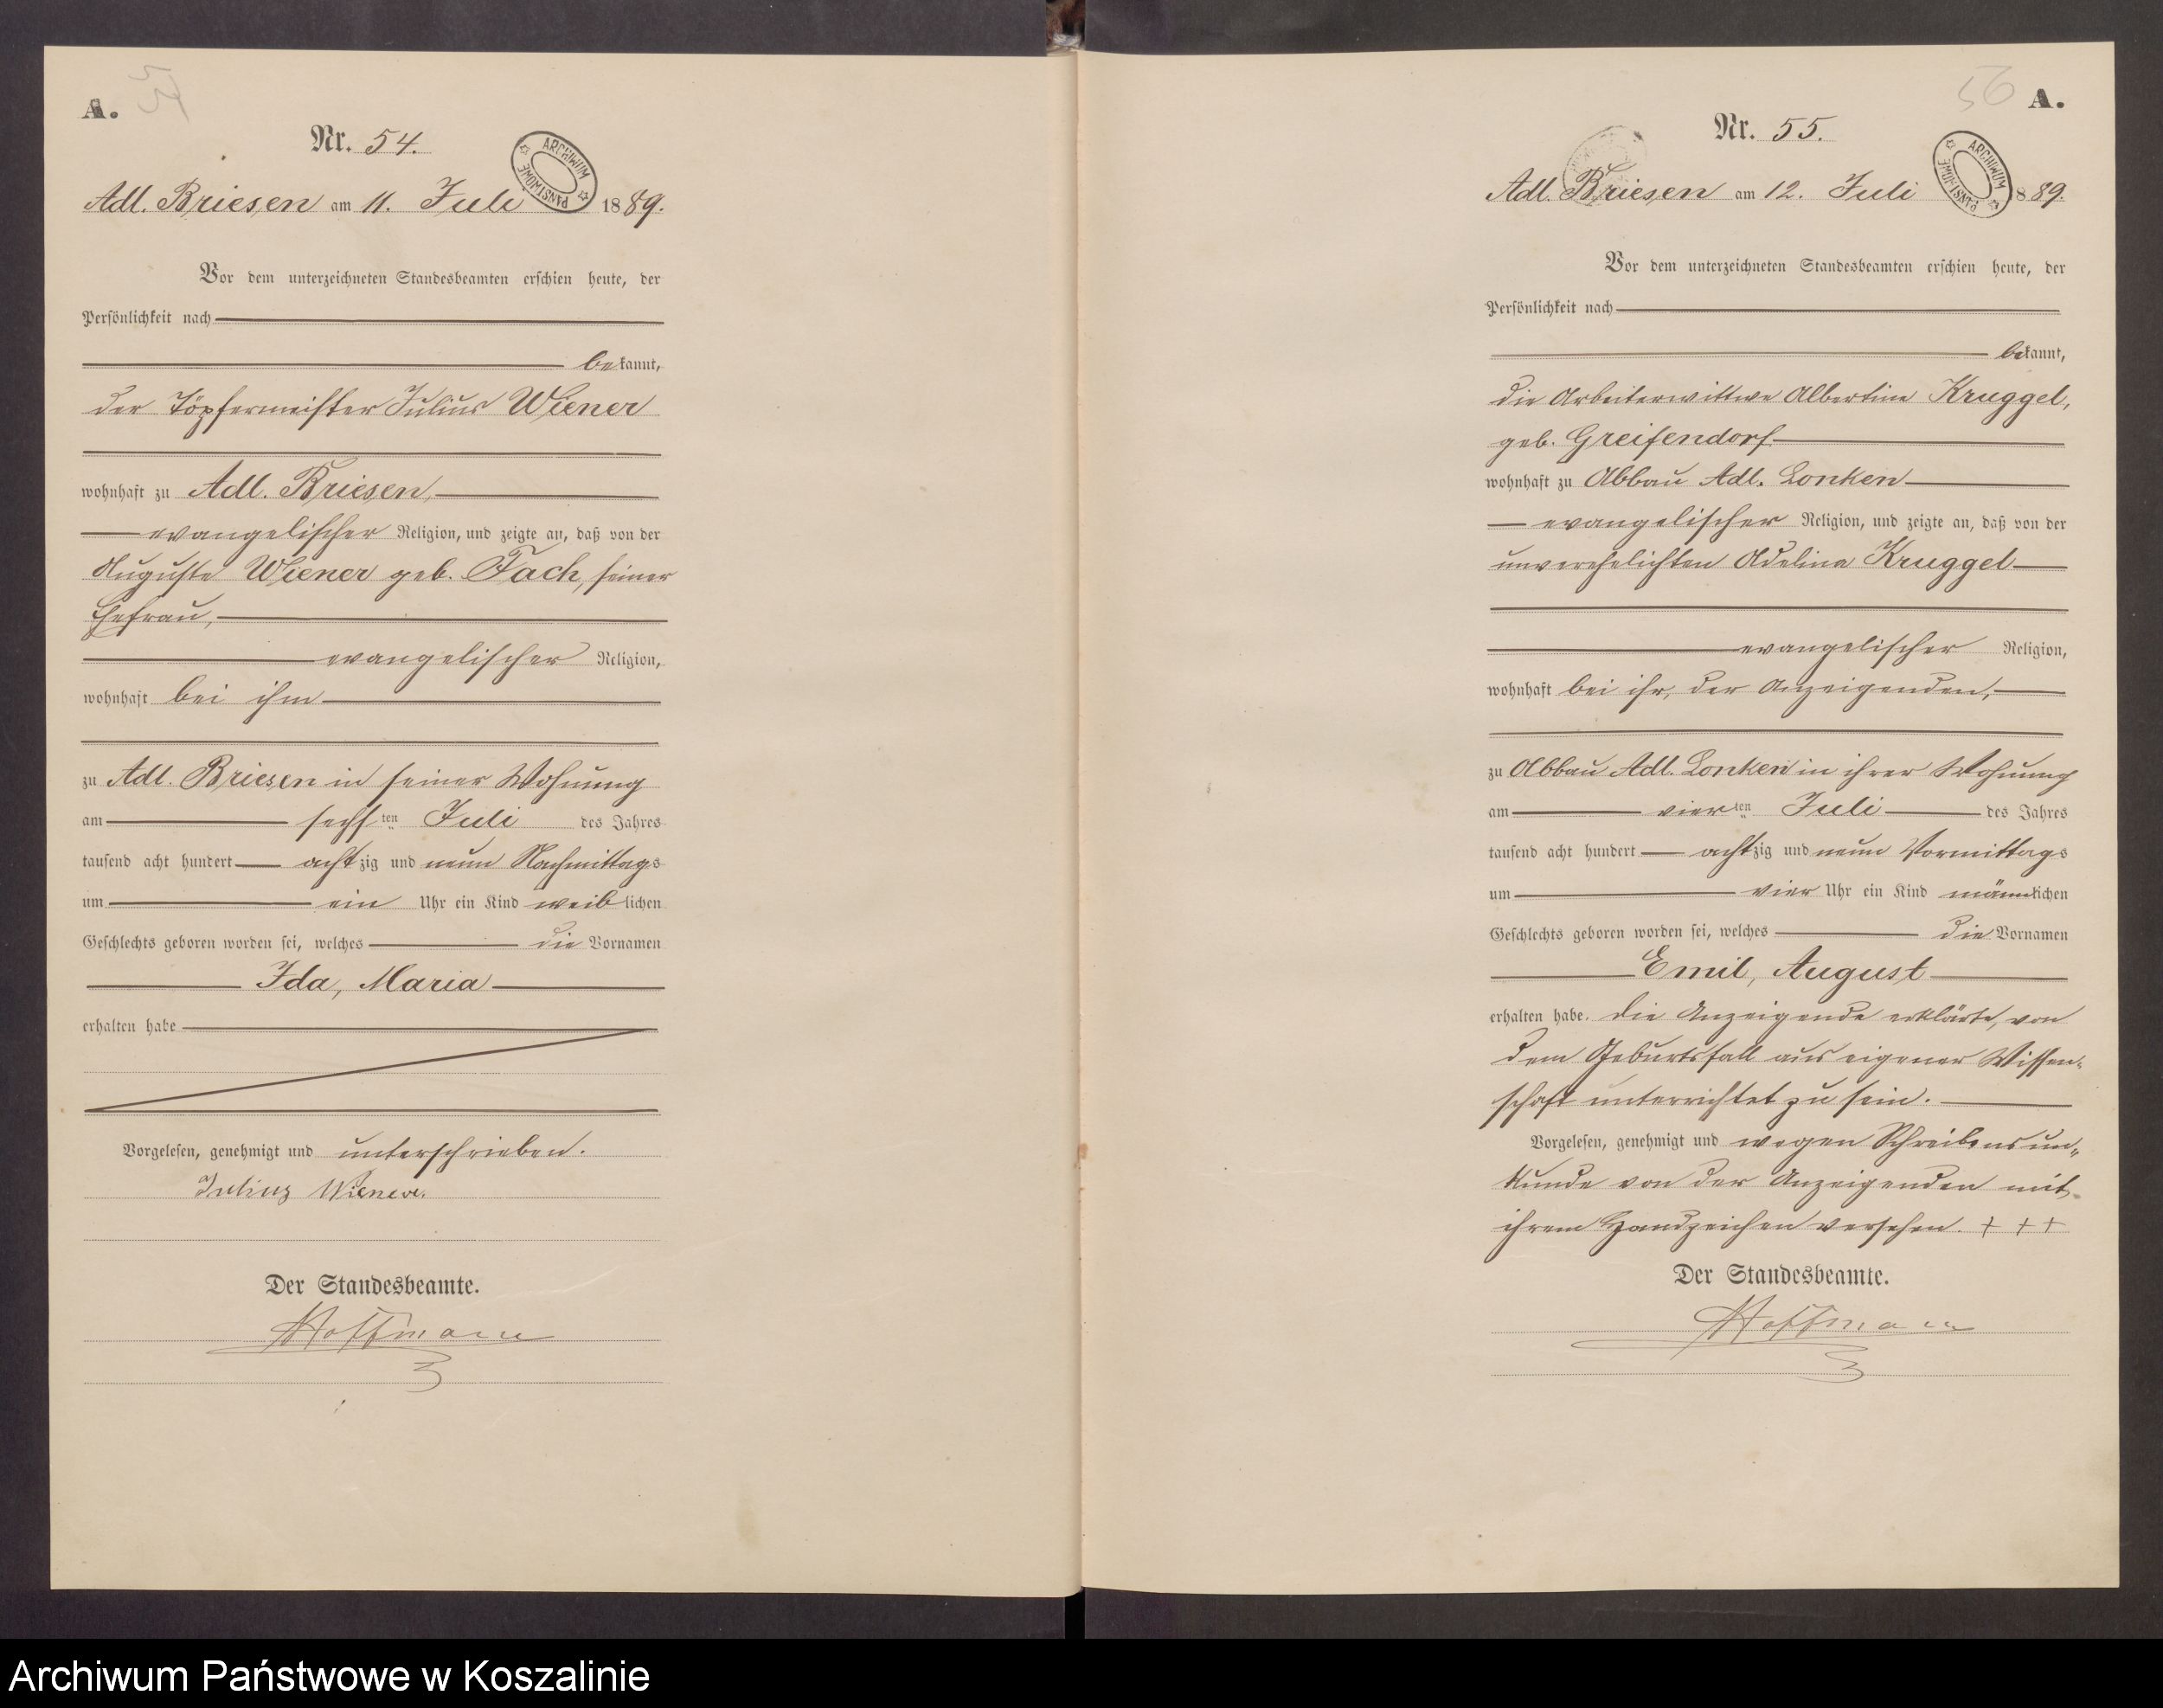 A.
Nr. 54.
ARCHIWUM PAŃSTWOWE
Adl. Briesen am 11. Juli 1889.
Vor dem unterzeichneten Standesbeamten erschien heute, der
Persönlichkeit nach
bekannt,
der Töpfermeister Julius Wiener
wohnhaft zu Adl. Briesen,
evangelischer Religion, und zeigte an, daß von der
Auguste Wiener geb. Fach, seiner
Ehefrau,
evangelischer Religion,
wohnhaft bei ihm
zu Adl. Briesen in seiner Wohnung
am sechsten Juli des Jahres
tausend acht hundert achtzig und neun Nachmittags
um ein Uhr ein Kind weiblichen
Geschlechts geboren worden sei, welches die Vornamen
Ida, Maria
erhalten habe
Vorgelesen, genehmigt und unterschrieben.
Julius Wiener.
Der Standesbeamte.
Hoffmann
56 A.
Nr. 55.
ARCHIWUM PAŃSTWOWE
Adl. Briesen am 12. Juli 1889.
Vor dem unterzeichneten Standesbeamten erschien heute, der
Persönlichkeit nach
bekannt,
die Arbeiterwittwe Albertine Kruggel,
geb. Greifendorf
wohnhaft zu Abbau Adl. Lonken
evangelischer Religion, und zeigte an, daß von der
unverehelichten Adeline Kruggel
evangelischer Religion,
wohnhaft bei ihr, der Anzeigenden,
zu Abbau Adl. Lonken in ihrer Wohnung
am vierten Juli des Jahres
tausend acht hundert achtzig und neun Vormittags
um vier Uhr ein Kind männlichen
Geschlechts geboren worden sei, welches die Vornamen
Emil, August
erhalten habe. Die Anzeigende erklärte, von
dem Geburtsfall aus eigener Wissen-
schaft unterrichtet zu sein.
Vorgelesen, genehmigt und wegen Schreibensun-
kunde von der Anzeigenden mit
ihrem Handzeichen versehen. + + +
Der Standesbeamte.
Hoffmann
Archiwum Państwowe w Koszalinie